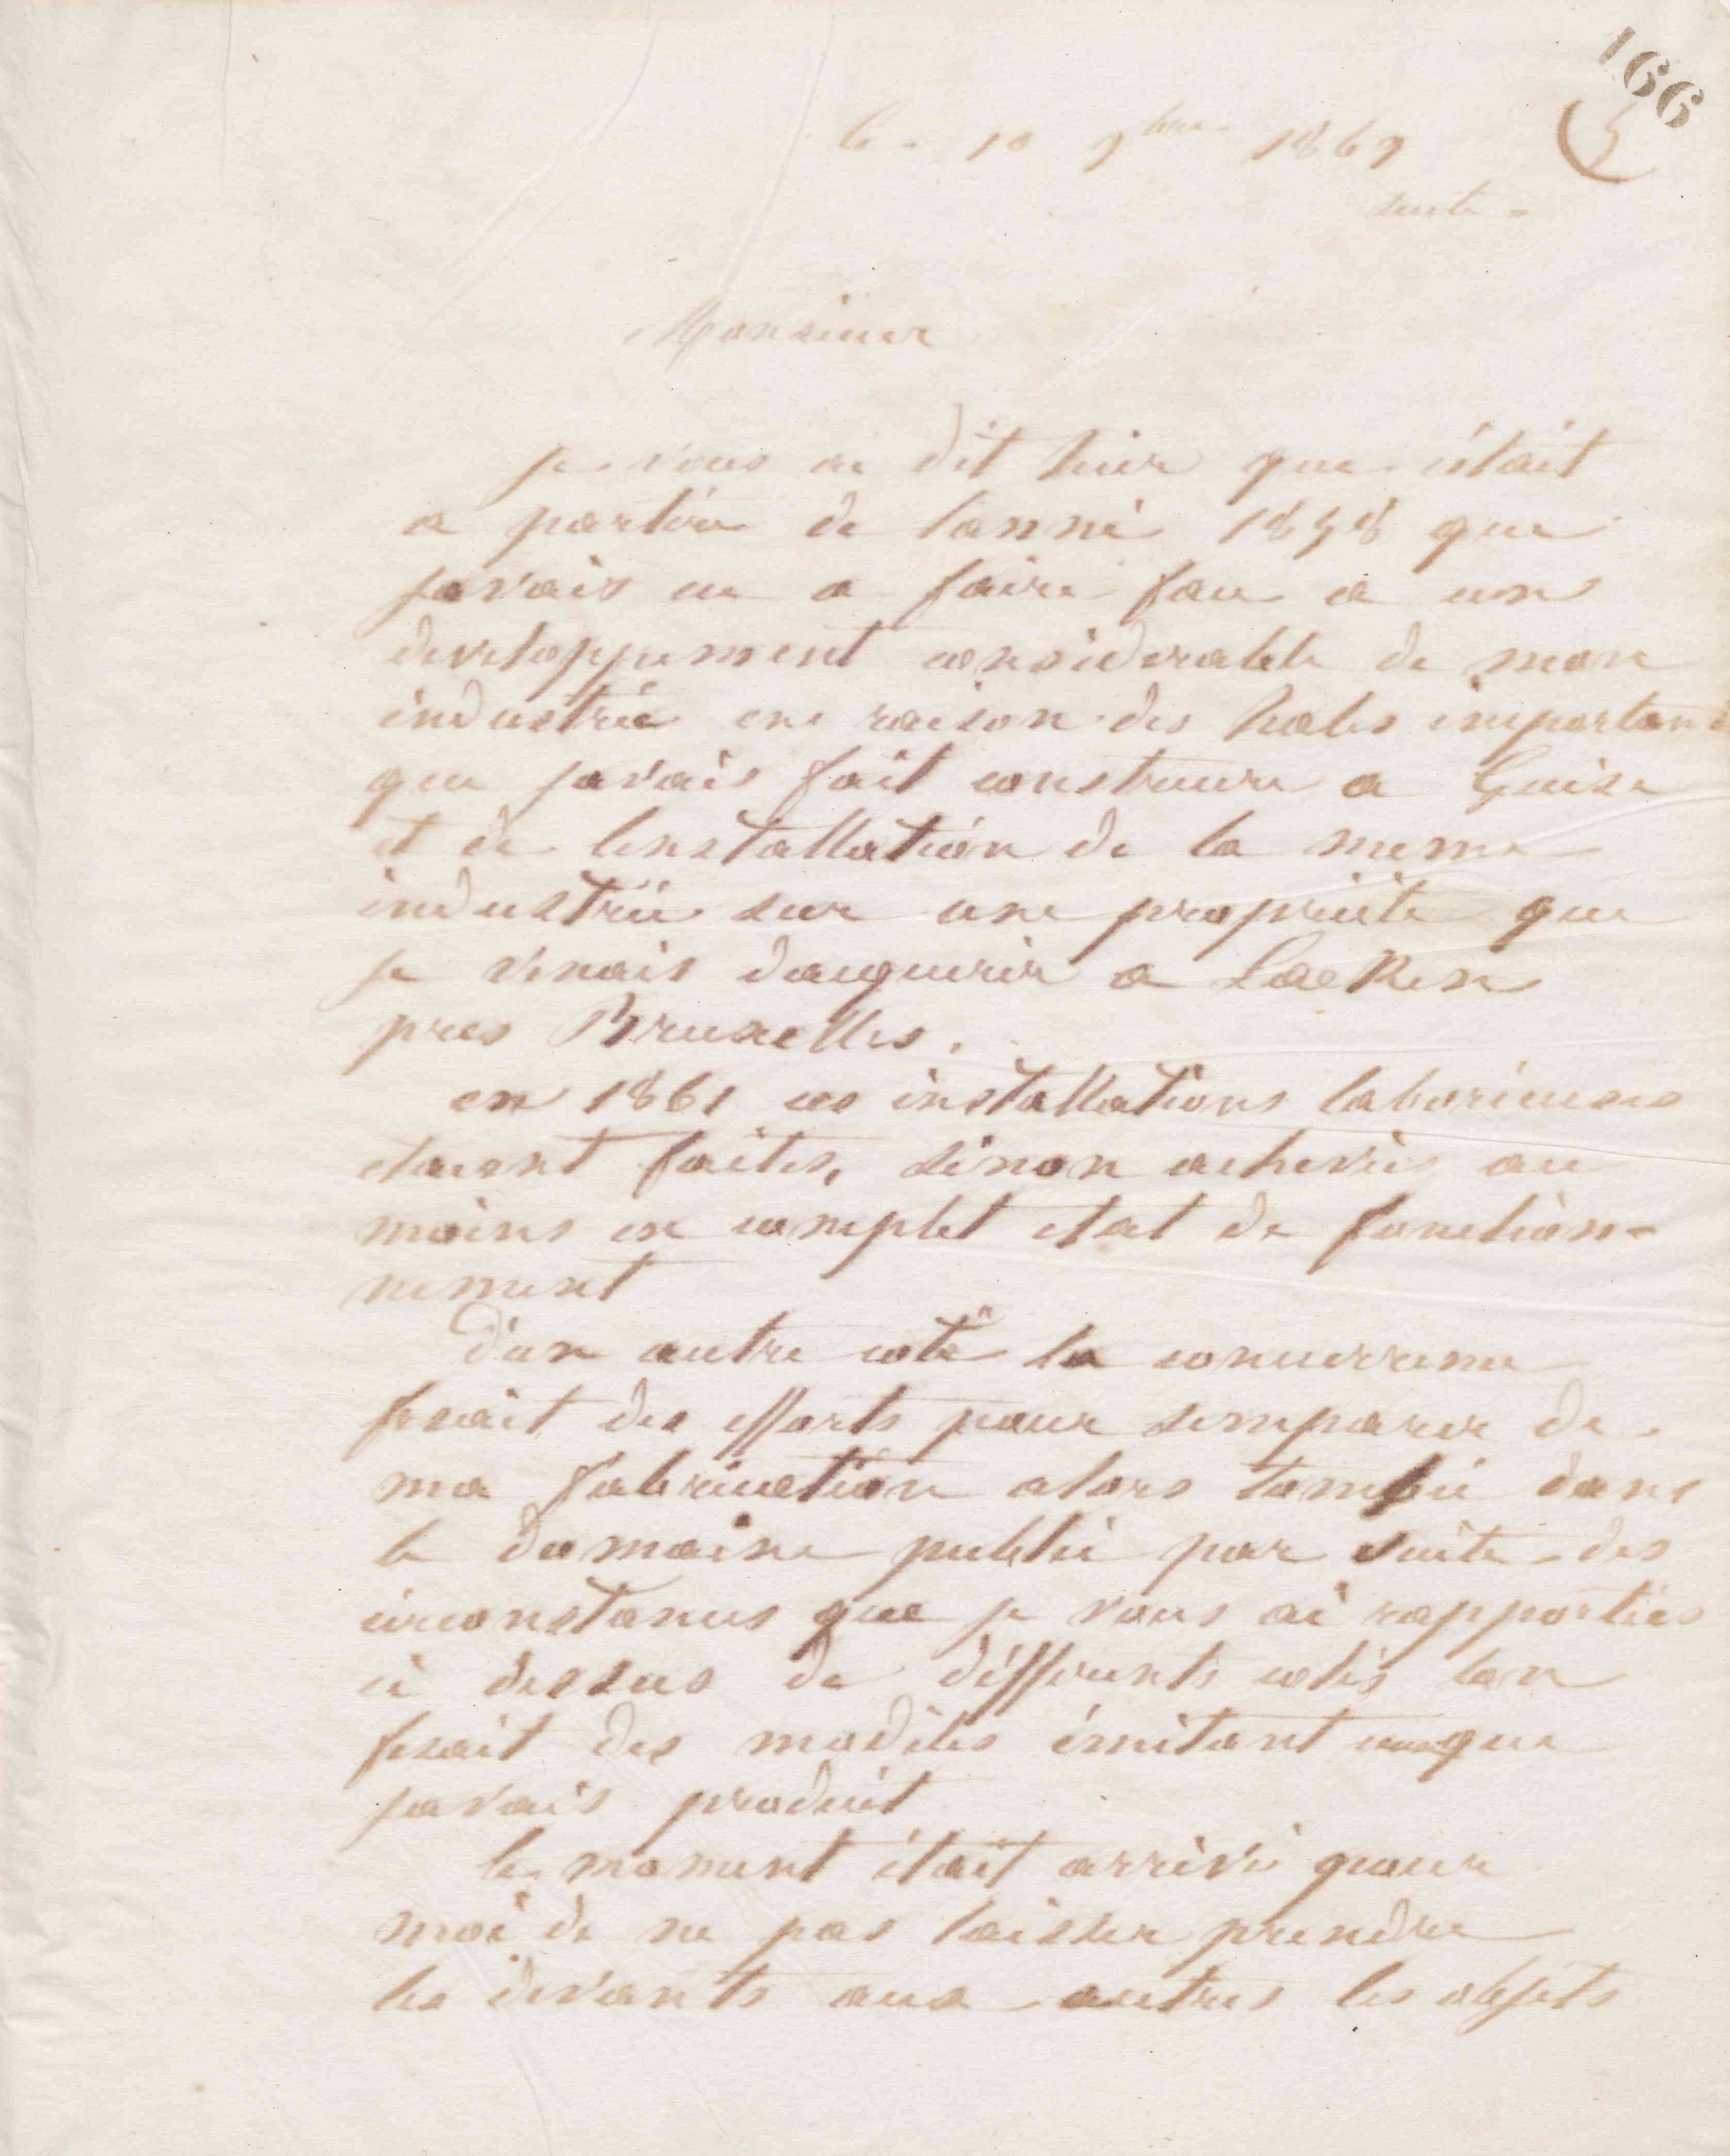 166
5
le 10 9bre 1869
suite =
Monsieur
je vous ai dit hier que cétait
a partir de lanneé 1858 que
javais eu a faire face a un
developpement considerable de mon
industrie en raison des hales important
que javais fait construire a Guise
et de linstallation de la meme
industrie sur une proprieté que
je venais dacquerir a Laeken
pres Bruxelles.
en 1861 ces installations laborieuses
etaient faites, sinon achevés au
moins en complet etat de fonction=
nement
d'un autre coté la concurrence
fesait des efforts pour semparer de
ma fabrication alors tombée dans
le domaine public par suite des
circonstances que je vous ai rapportées
ci dessus de différents cotés lon
fesait des modèles imitant ce que
javais produit
le moment était arrivé pour
moi de ne pas laisser prendre
les devants aux autres les objets